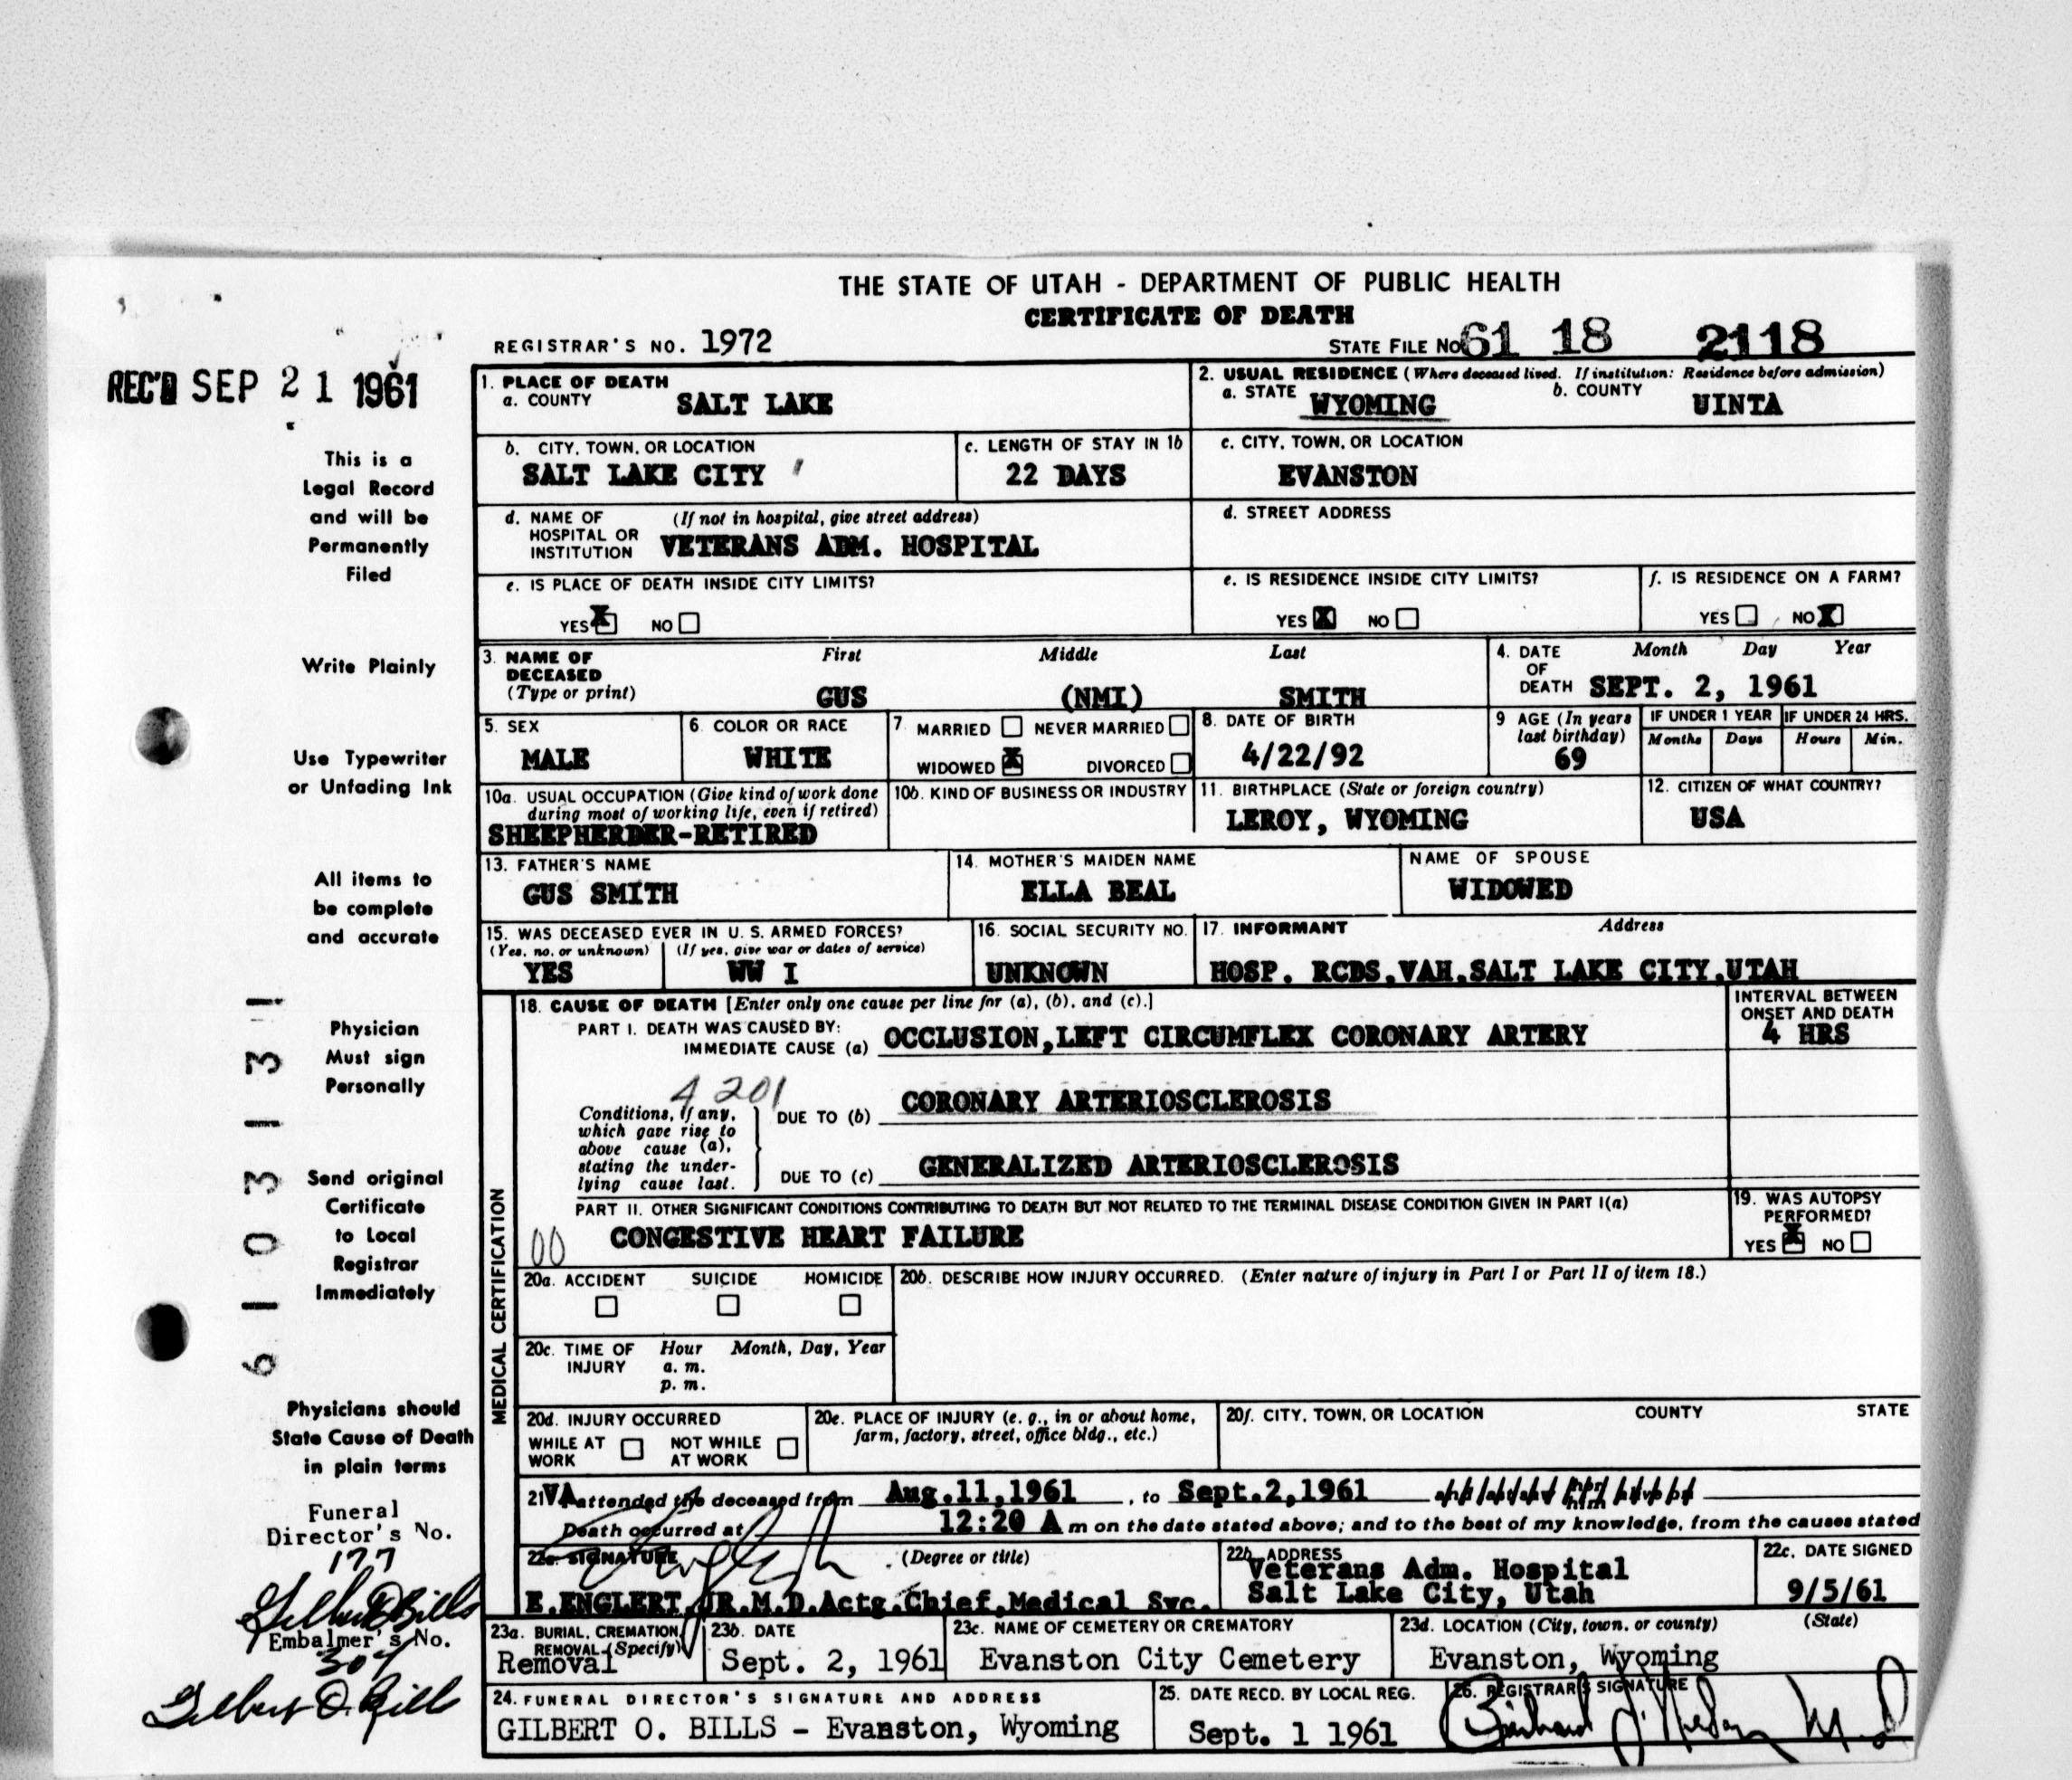 THE STATE OF UTAH - DEPARTMENT OF PUBLIC HEALTH
CERTIFICATE OF DEATH
REGISTRAR'S NO. 1972
STATE FILE No 61 18 2118
REC'D SEP 21 1961
This is a
Legal Record
and will be
Permanently
Filed
Write Plainly
Use Typewriter
or Unfading Ink
All items to
be complete
and accurate
Physician
Must sign
Personally
Send original
Certificate
to Local
Registrar
Immediately
Physicians should
State Cause of Death
in plain terms
6103131
Funeral
Director's No.
177
Gilbert O Bills
Embalmer's No.
307
Gilbert O. Bills
1. PLACE OF DEATH
a. COUNTY SALT LAKE
2. USUAL RESIDENCE (Where deceased lived. If institution: Residence before admission)
a. STATE WYOMING b. COUNTY UINTA
b. CITY, TOWN, OR LOCATION
SALT LAKE CITY
c. LENGTH OF STAY IN 1b
22 DAYS
c. CITY, TOWN, OR LOCATION
EVANSTON
d. NAME OF HOSPITAL OR INSTITUTION (If not in hospital, give street address)
VETERANS ADM. HOSPITAL
d. STREET ADDRESS
e. IS PLACE OF DEATH INSIDE CITY LIMITS?
YES X NO
e. IS RESIDENCE INSIDE CITY LIMITS?
YES X NO
f. IS RESIDENCE ON A FARM?
YES NO X
3. NAME OF DECEASED (Type or print)
First Middle Last
GUS (NMI) SMITH
4. DATE OF DEATH Month Day Year
SEPT. 2, 1961
5. SEX
MALE
6. COLOR OR RACE
WHITE
7. MARRIED NEVER MARRIED
WIDOWED X DIVORCED
8. DATE OF BIRTH
4/22/92
9 AGE (In years last birthday)
69
IF UNDER 1 YEAR IF UNDER 24 HRS.
Months Days Hours Min.
10a. USUAL OCCUPATION (Give kind of work done during most of working life, even if retired)
SHEEPHERDER-RETIRED
10b. KIND OF BUSINESS OR INDUSTRY
11. BIRTHPLACE (State or foreign country)
LEROY, WYOMING
12. CITIZEN OF WHAT COUNTRY?
USA
13. FATHER'S NAME
GUS SMITH
14. MOTHER'S MAIDEN NAME
ELLA BEAL
NAME OF SPOUSE
WIDOWED
15. WAS DECEASED EVER IN U. S. ARMED FORCES?
(Yes, no, or unknown) (If yes, give war or dates of service)
YES WW I
16. SOCIAL SECURITY NO.
UNKNOWN
17. INFORMANT Address
HOSP. RCDS,VAH,SALT LAKE CITY,UTAH
MEDICAL CERTIFICATION
18. CAUSE OF DEATH [Enter only one cause per line for (a), (b), and (c).]
INTERVAL BETWEEN ONSET AND DEATH
PART I. DEATH WAS CAUSED BY:
IMMEDIATE CAUSE (a) OCCLUSION,LEFT CIRCUMFLEX CORONARY ARTERY 4 HRS
4201
Conditions, if any, which gave rise to above cause (a), stating the underlying cause last.
DUE TO (b) CORONARY ARTERIOSCLEROSIS
DUE TO (c) GENERALIZED ARTERIOSCLEROSIS
PART II. OTHER SIGNIFICANT CONDITIONS CONTRIBUTING TO DEATH BUT NOT RELATED TO THE TERMINAL DISEASE CONDITION GIVEN IN PART I(a)
00 CONGESTIVE HEART FAILURE
19. WAS AUTOPSY PERFORMED?
YES X NO
20a. ACCIDENT SUICIDE HOMICIDE
20b. DESCRIBE HOW INJURY OCCURRED. (Enter nature of injury in Part I or Part II of item 18.)
20c. TIME OF INJURY Hour Month, Day, Year
a. m.
p. m.
20d. INJURY OCCURRED
WHILE AT WORK NOT WHILE AT WORK
20e. PLACE OF INJURY (e. g., in or about home, farm, factory, street, office bldg., etc.)
20f. CITY, TOWN, OR LOCATION COUNTY STATE
21 VA attended the deceased from Aug.11,1961, to Sept.2,1961
Death occurred at 12:20 A m on the date stated above; and to the best of my knowledge, from the causes stated
22a. SIGNATURE (Degree or title)
E.ENGLERT,JR.M.D.Actg.Chief,Medical Svc.
22b. ADDRESS
Veterans Adm. Hospital
Salt Lake City, Utah
22c. DATE SIGNED
9/5/61
23a. BURIAL, CREMATION, REMOVAL (Specify)
Removal
23b. DATE
Sept. 2, 1961
23c. NAME OF CEMETERY OR CREMATORY
Evanston City Cemetery
23d. LOCATION (City, town, or county) (State)
Evanston, Wyoming
24. FUNERAL DIRECTOR'S SIGNATURE AND ADDRESS
GILBERT O. BILLS - Evanston, Wyoming
25. DATE RECD. BY LOCAL REG.
Sept. 1 1961
26. REGISTRAR'S SIGNATURE